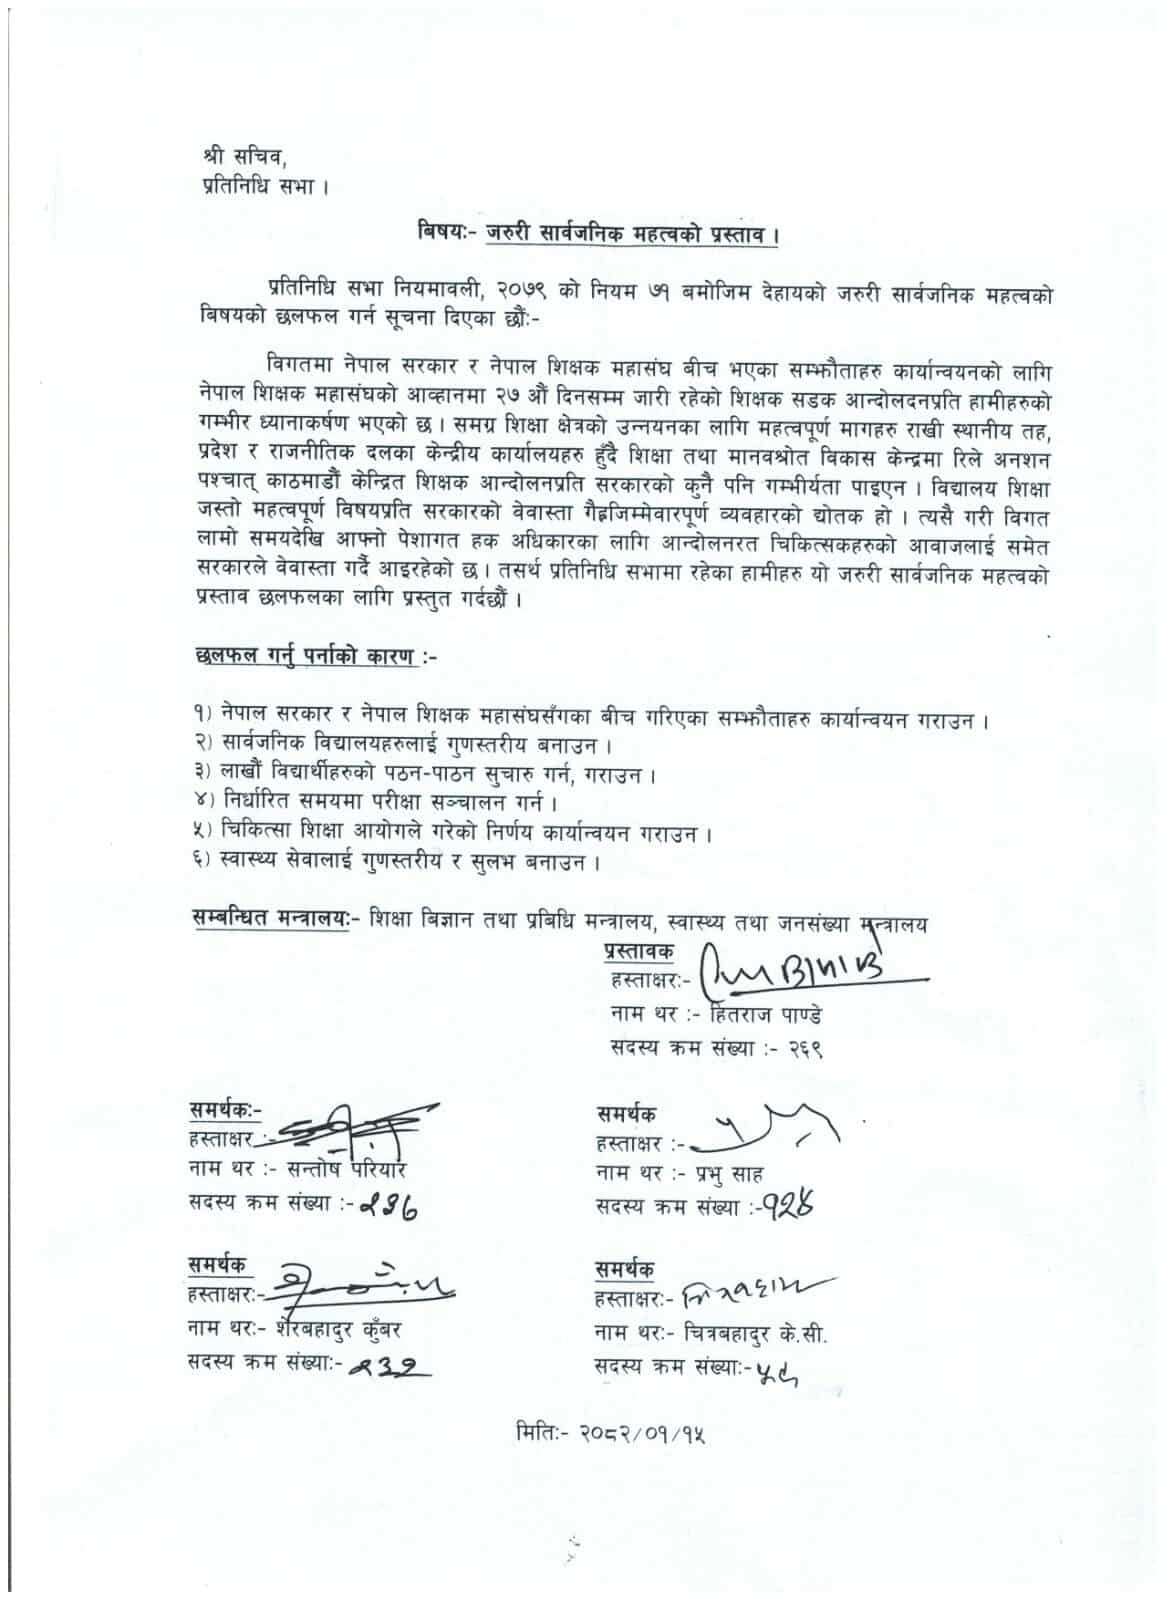 श्री सचिव,
प्रतिनिधि सभा ।
बिषयः- जरुरी सार्वजनिक महत्वको प्रस्ताव ।
प्रतिनिधि सभा नियमावली, २०७९ को नियम ७१ बमोजिम देहायको जरुरी सार्वजनिक महत्वको
बिषयको छलफल गर्न सूचना दिएका छौंः-
विगतमा नेपाल सरकार र नेपाल शिक्षक महासंघ बीच भएका सम्झौताहरु कार्यान्वयनको लागि
नेपाल शिक्षक महासंघको आव्हानमा २७ औं दिनसम्म जारी रहेको शिक्षक सडक आन्दोलदनप्रति हामीहरुको
गम्भीर ध्यानाकर्षण भएको छ । समग्र शिक्षा क्षेत्रको उन्नयनका लागि महत्वपूर्ण मागहरु राखी स्थानीय तह,
प्रदेश र राजनीतिक दलका केन्द्रीय कार्यालयहरु हुँदै शिक्षा तथा मानवश्रोत विकास केन्द्रमा रिले अनशन
पश्चात् काठमाडौं केन्द्रित शिक्षक आन्दोलनप्रति सरकारको कुनै पनि गम्भीर्यता पाइएन । विद्यालय शिक्षा
जस्तो महत्वपूर्ण विषयप्रति सरकारको वेवास्ता गैह्रजिम्मेवारपूर्ण व्यवहारको द्योतक हो । त्यसै गरी विगत
लामो समयदेखि आफ्नो पेशागत हक अधिकारका लागि आन्दोलनरत चिकित्सकहरुको आवाजलाई समेत
सरकारले वेवास्ता गर्दै आइरहेको छ । तसर्थ प्रतिनिधि सभामा रहेका हामीहरु यो जरुरी सार्वजनिक महत्वको
प्रस्ताव छलफलका लागि प्रस्तुत गर्दछौं ।
छलफल गर्नु पर्नाको कारण :-
१) नेपाल सरकार र नेपाल शिक्षक महासंघसँगका बीच गरिएका सम्झौताहरु कार्यान्वयन गराउन ।
२) सार्वजनिक विद्यालयहरुलाई गुणस्तरीय बनाउन ।
३) लाखौं विद्यार्थीहरुको पठन-पाठन सुचारु गर्न, गराउन ।
४) निर्धारित समयमा परीक्षा सञ्चालन गर्न ।
५) चिकित्सा शिक्षा आयोगले गरेको निर्णय कार्यान्वयन गराउन ।
६) स्वास्थ्य सेवालाई गुणस्तरीय र सुलभ बनाउन ।
सम्बन्धित मन्त्रालयः- शिक्षा बिज्ञान तथा प्रबिधि मन्त्रालय, स्वास्थ्य तथा जनसंख्या मन्त्रालय
प्रस्तावक
हस्ताक्षरः-
नाम थर :- हितराज पाण्डे
सदस्य क्रम संख्या :- २६९
समर्थकः-
हस्ताक्षर :-
नाम थर :- सन्तोष परियार
सदस्य क्रम संख्या :-
समर्थक
हस्ताक्षर :-
नाम थर :- प्रभु साह
सदस्य क्रम संख्या :-१२४
समर्थक
हस्ताक्षरः-
नाम थरः- शेरबहादुर कुँवर
सदस्य क्रम संख्याः- २३२
समर्थक
हस्ताक्षरः-
नाम थरः- चित्रबहादुर के.सी.
सदस्य क्रम संख्याः-
मितिः- २०८२/०१/१५